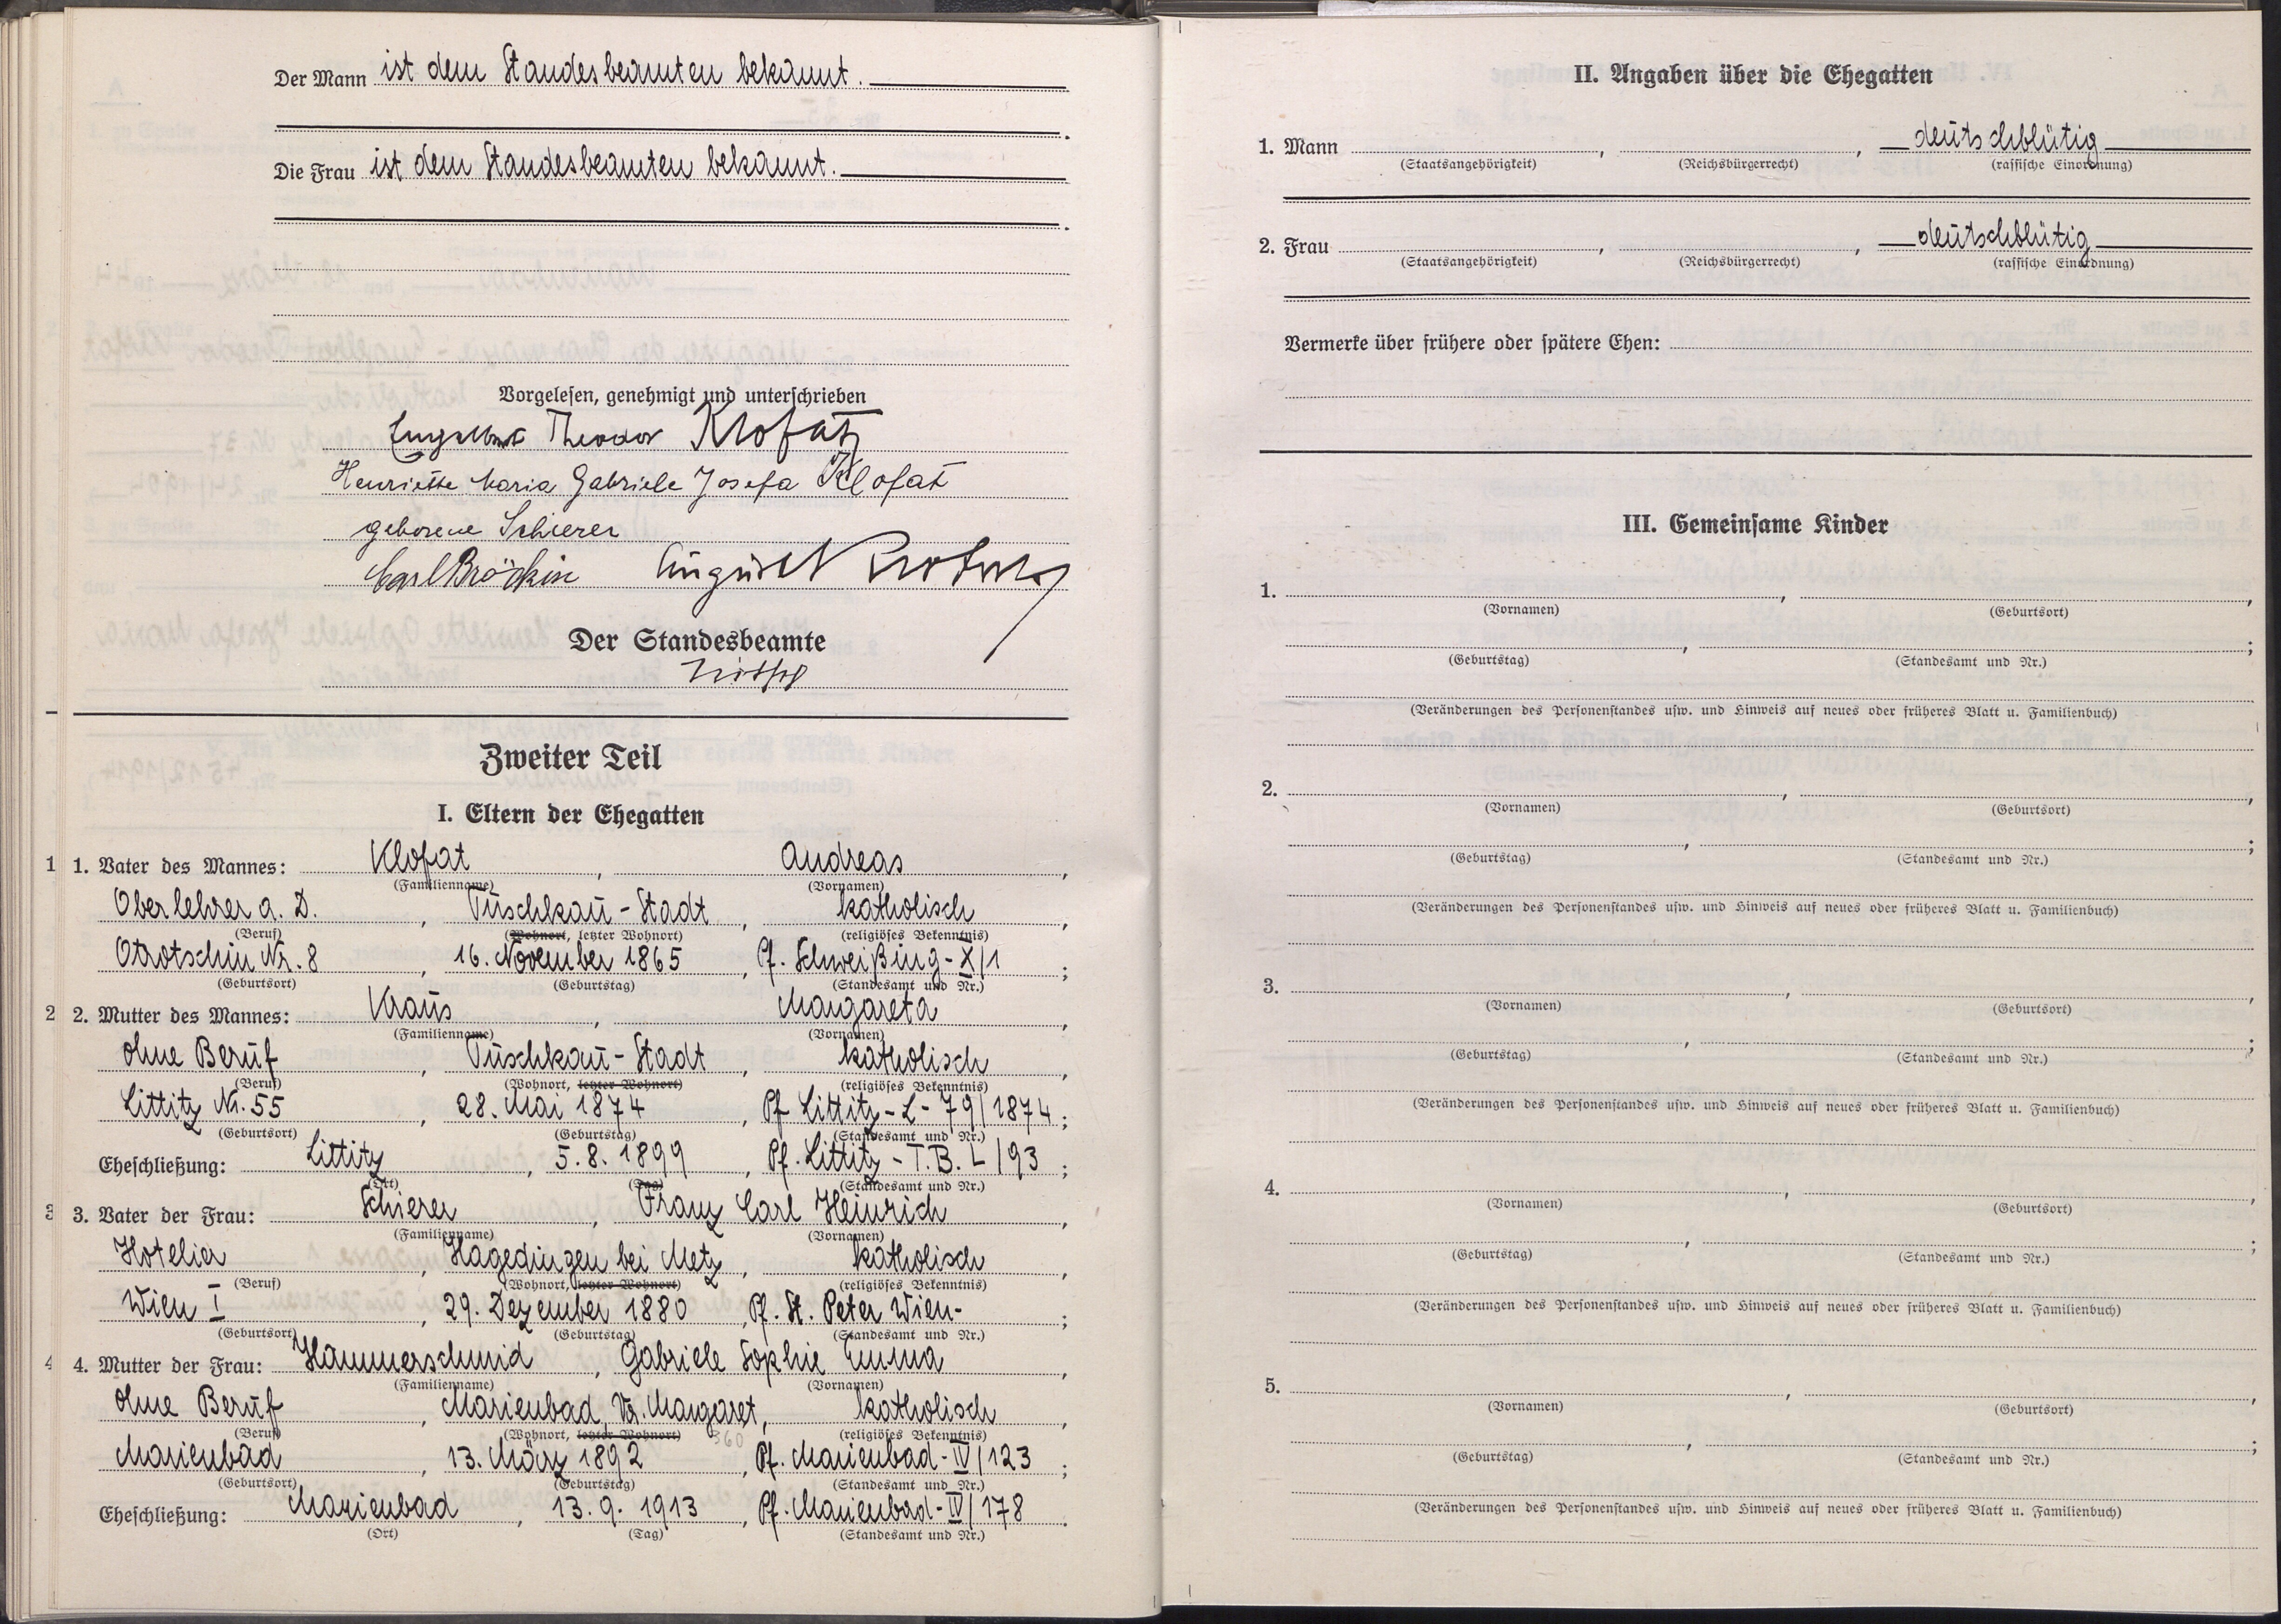 Der Mann ist dem Standesbeamten bekannt.
Die Frau ist dem Standesbeamten bekannt.
Vorgelesen, genehmigt und unterschrieben
Engelbert Theodor Klofat
Henriette Maria Gabriele Josefa Klofat
geborene Schierer
Carl August
Der Standesbeamte
Zweiter Teil
I. Eltern der Ehegatten
1 1. Vater des Mannes: Klofat, Andreas,
(Familienname) (Vornamen)
Oberlehrer a. D., Tuschkau-Stadt, katholisch,
(Beruf) (Wohnort, letzter Wohnort) (religiöses Bekenntnis)
Otrotschin Nr. 8, 16. November 1865, Pf. Schweißing-X/1;
(Geburtsort) (Geburtstag) (Standesamt und Nr.)
2 2. Mutter des Mannes: Kraus, Margareta,
(Familienname) (Vornamen)
ohne Beruf, Tuschkau-Stadt, katholisch,
(Beruf) (Wohnort, letzter Wohnort) (religiöses Bekenntnis)
Littitz Nr. 55, 28. Mai 1874, Pf Littitz-L-79/1874;
(Geburtsort) (Geburtstag) (Standesamt und Nr.)
Eheschließung: Littitz, 5.8.1899, Pf. Littitz-T.B. L/93;
(Ort) (Tag) (Standesamt und Nr.)
3 3. Vater der Frau: Schierer, Franz Carl Heinrich,
(Familienname) (Vornamen)
Hotelier, Hagedingen bei Metz, katholisch,
(Beruf) (Wohnort, letzter Wohnort) (religiöses Bekenntnis)
Wien I, 29. Dezember 1880, Pf. St. Peter Wien-;
(Geburtsort) (Geburtstag) (Standesamt und Nr.)
4 4. Mutter der Frau: Hammerschmid, Gabriele Sophie Emma,
(Familienname) (Vornamen)
ohne Beruf, Marienbad, Margaret, katholisch,
(Beruf) (Wohnort, letzter Wohnort) 360 (religiöses Bekenntnis)
Marienbad, 13. März 1892, Pf. Marienbad-IV/123;
(Geburtsort) (Geburtstag) (Standesamt und Nr.)
Eheschließung: Marienbad, 13.9.1913, Pf. Marienbad-IV/178.
(Ort) (Tag) (Standesamt und Nr.)
II. Angaben über die Ehegatten
1. Mann , , deutschblütig
(Staatsangehörigkeit) (Reichsbürgerrecht) (rassische Einordnung)
2. Frau , , deutschblütig
(Staatsangehörigkeit) (Reichsbürgerrecht) (rassische Einordnung)
Vermerke über frühere oder spätere Ehen:
III. Gemeinsame Kinder
1. , ,
(Vornamen) (Geburtsort)
, ;
(Geburtstag) (Standesamt und Nr.)
(Veränderungen des Personenstandes usw. und Hinweis auf neues oder früheres Blatt u. Familienbuch)
2. , ,
(Vornamen) (Geburtsort)
, ;
(Geburtstag) (Standesamt und Nr.)
(Veränderungen des Personenstandes usw. und Hinweis auf neues oder früheres Blatt u. Familienbuch)
3. , ,
(Vornamen) (Geburtsort)
, ;
(Geburtstag) (Standesamt und Nr.)
(Veränderungen des Personenstandes usw. und Hinweis auf neues oder früheres Blatt u. Familienbuch)
4. , ,
(Vornamen) (Geburtsort)
, ;
(Geburtstag) (Standesamt und Nr.)
(Veränderungen des Personenstandes usw. und Hinweis auf neues oder früheres Blatt u. Familienbuch)
5. , ,
(Vornamen) (Geburtsort)
, ;
(Geburtstag) (Standesamt und Nr.)
(Veränderungen des Personenstandes usw. und Hinweis auf neues oder früheres Blatt u. Familienbuch)